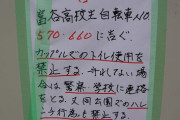 富谷高校生自転車NO.
570・660に告ぐ.
カップルでのトイレ使用を
禁止する. 守れない場
合は警察・学校に連絡
をとる. 又同公園でのハレ
ンチ行為も禁止する.